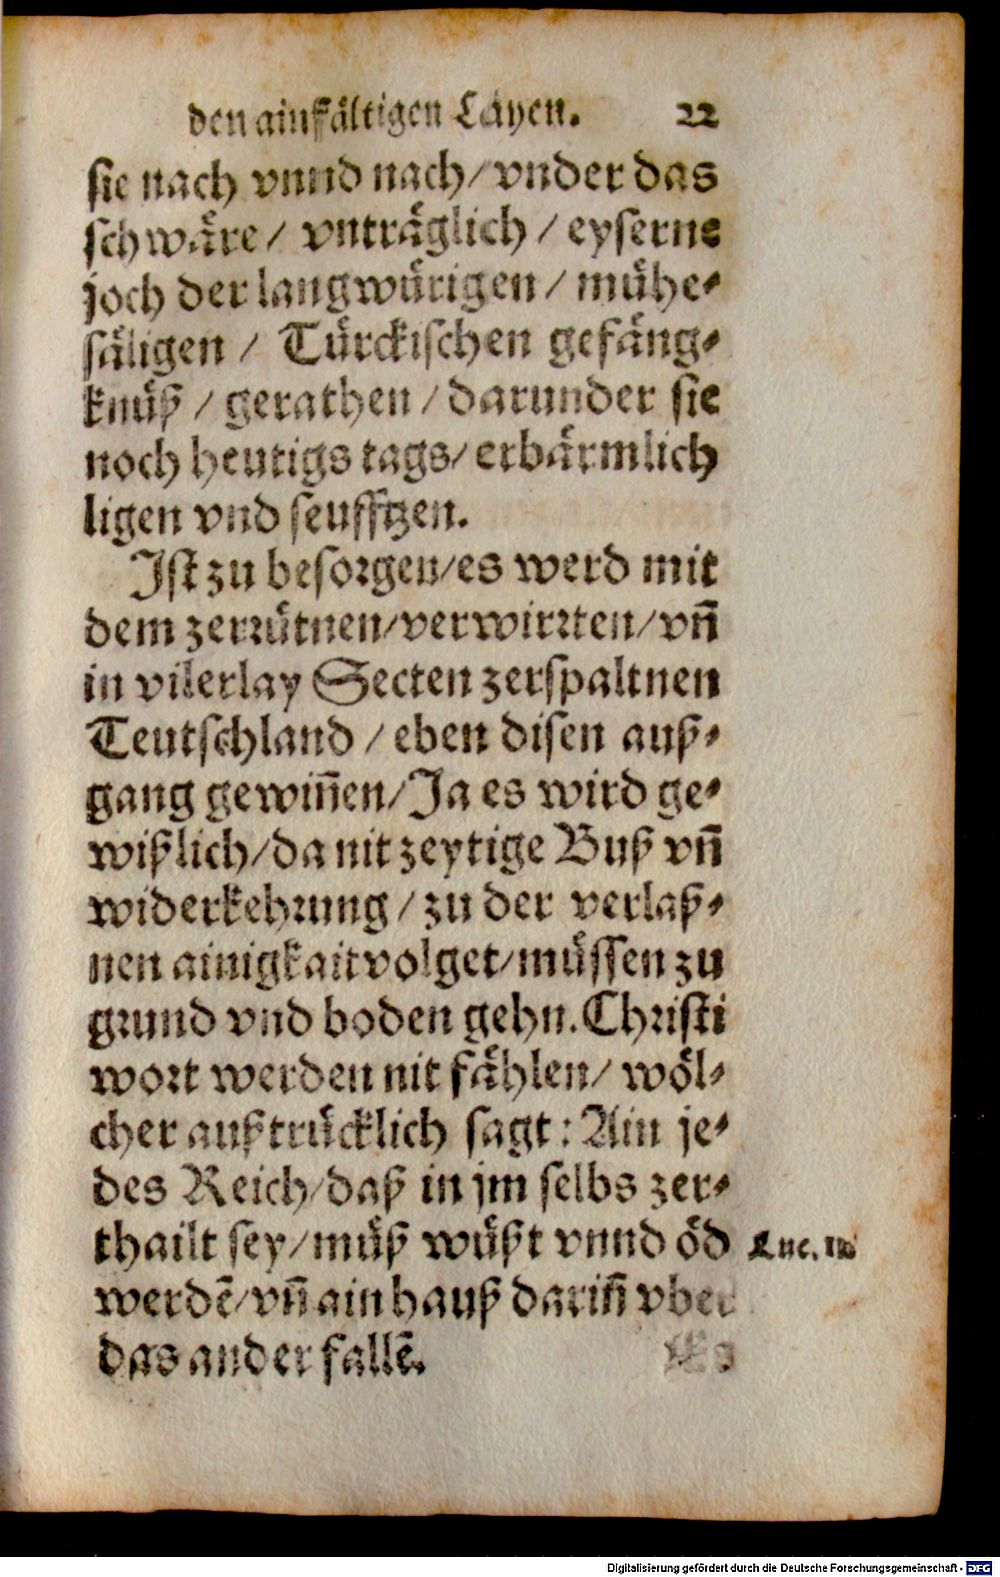 den ainfältigen Layen. 22
sie nach vnnd nach/ vnder das
schwäre/ vnträglich/ eyserne
joch der langwürigen/ mühe-
säligen/ Türckischen gefäng-
knüß/ gerathen/ darunder sie
noch heutigs tags/ erbärmlich
ligen vnd seufftzen.
Ist zu besorgen/ es werd mit
dem zerrütnen/ verwirrten/ vñ
in vilerlay Secten zerspaltnen
Teutschland/ eben disen auß-
gang gewiñen/ Ja es wird ge-
wißlich/ da nit zeytige Buß vñ
widerkehrung/ zu der verlaß-
nen ainigkait volget/ müssen zu
grund vnd boden gehn. Christi
wort werden nit fählen/ wöl-
cher außtrücklich sagt: Ain je-
des Reich/ daß in jm selbs zer-
thailt sey/ müß wüßt vnnd öd
Luc.
werdẽ/ vñ ain hauß dariñ vber
das ander fallẽ.
Digitalisierung gefördert durch die Deutsche Forschungsgemeinschaft - DFG